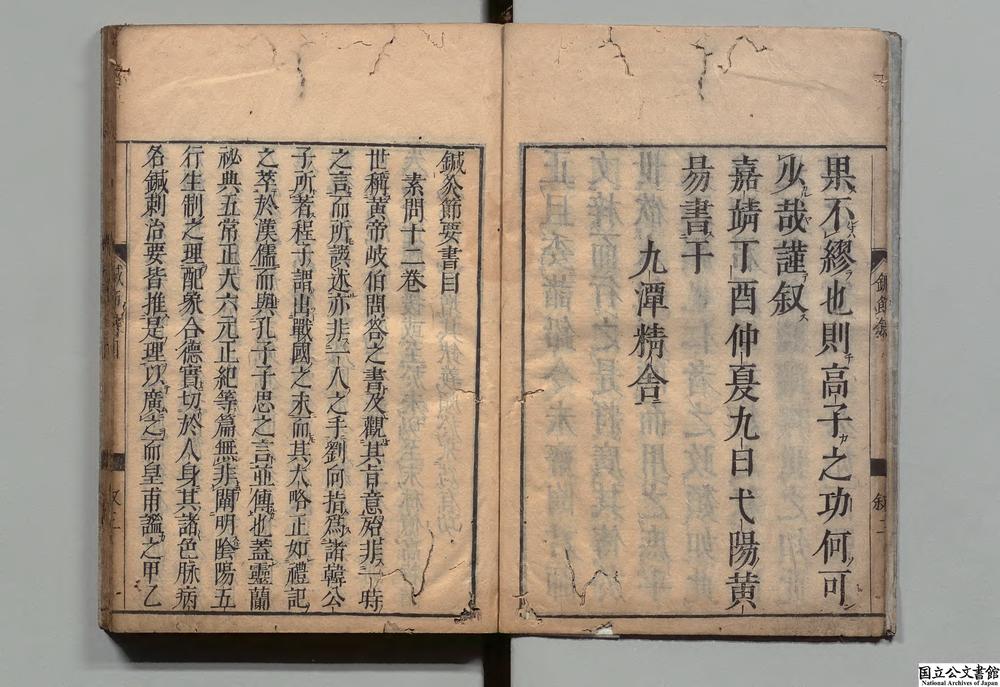 果不繆也則高子之功何可
少哉謹叙
嘉靖丁酉仲夏九日弋陽黄
易書于
九潭精舍
鍼灸節要書目
素問十二卷
世稱黄帝岐伯問答之書及觀其旨意殆非一時
之言而所譔述亦非一人之手劉向指爲諸韓公
子所著程子謂出戰國之末而其大略正如禮記
之萃於漢儒而與孔子子思之言並傳也蓋靈蘭
祕典五常正大六元正紀等篇無非闡明陰陽五
行生制之理配象合德實切於人身其諸色脉病
名鍼刺治要皆推是理以廣之而皇甫謐之甲乙
国立公文書館
National Archives of Japan